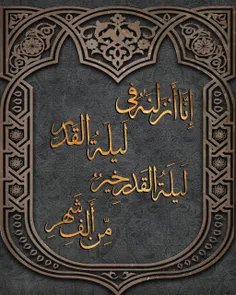 إنا أنزلنه في
ليلة القدر
ليلة القدر خير
من ألف شهر